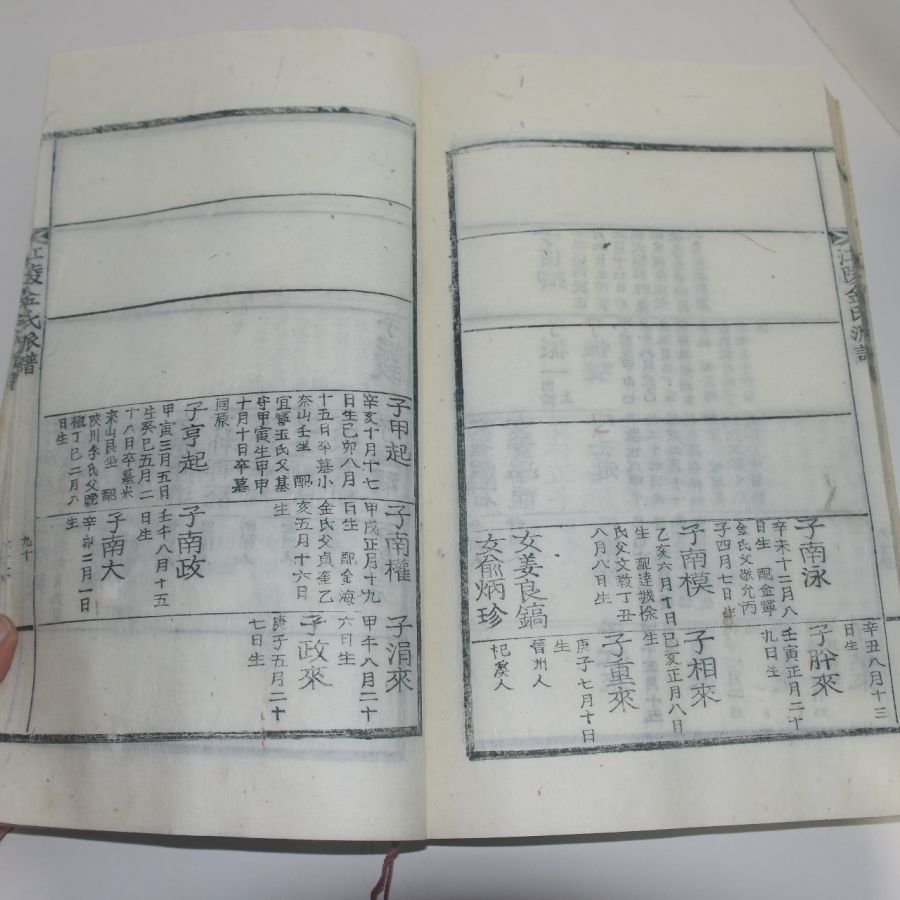 江陵金氏派譜
辛丑八月十三
日生
子南泳
辛未十二月八
日生 配金寧
金氏父敬允丙
子四月七日生
子肸來
壬寅正月二十
九日生
子南模
乙亥六月十日
生 配達城徐
氏父文敎丁丑
八月八日生
子相來
己亥正月八日
生
子重來
庚子七月十日
生
女姜良鎬
晉州人
女兪炳珍
杞溪人
子甲起
辛亥十月十七
日生己卯八月
十五日卒墓小
奈山壬坐 配
宜寧玉氏父基
守甲寅生甲申
十月十日卒墓
同原
子南權
甲戌正月十九
日生 配金海
金氏父貞奎乙
亥五月十六日
生
子涓來
甲午八月二十
六日生
子政來
庚子五月二十
七日生
子亨起
甲寅三月五日
生癸巳五月二
十八日卒墓米
來山艮坐 配
陜川李氏父晩
植丁巳二月八
日生
子南政
壬午八月十五
日生
子南大
辛卯三月一日
生
江陵金氏派譜
九十